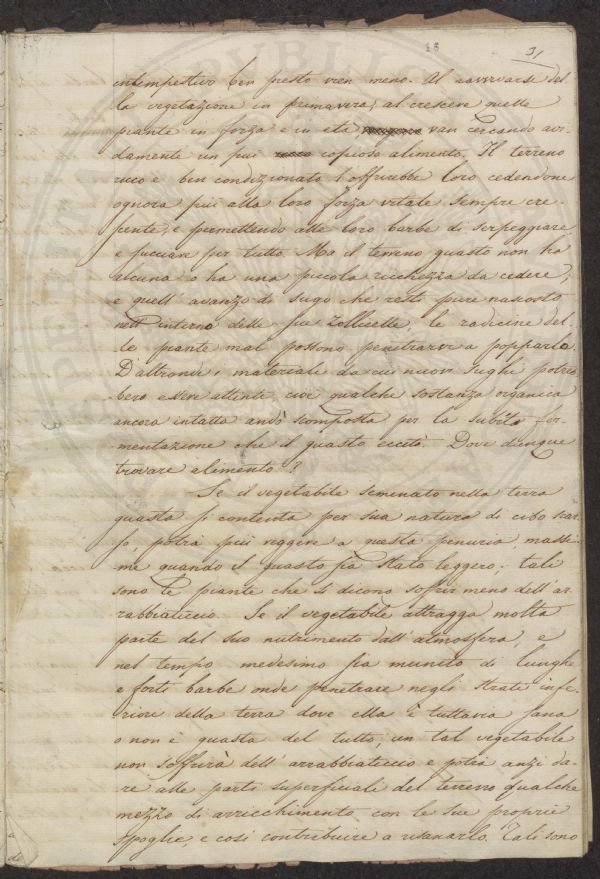 16
31
intempestivo ben presto vien meno. Al ravvivarsi del-
la vegetazione in primavera, al crescere quelle
piante in forza e in età van cercando avi-
damente un più copioso alimento. Il terreno
ricco e ben condizionato l'offrirebbe loro cedendone
ognora più alla loro forza vitale sempre cre-
scente, e permettendo alle loro barbe di serpeggiare
e succiare per tutto. Ma il terreno guasto non ha
alcuna o ha una piccola ricchezza da cedere;
e quell'avanzo di sugo che resti pure nascosto
nell'interno delle sue zollicelle, le radicine del-
le piante mal possono penetrarvi a popparlo.
D'altronde i materiali da cui nuovi sughi potreb-
bero essere attinti cioè qualche sostanza organica
ancora intatta andò scomposta per la subita fer-
mentazione che il guasto eccitò. Dove dunque
trovare alimento?
Se il vegetabile seminato nella terra
guasta si contenta per sua natura di cibo scar-
so, potrà più reggere a questa penuria, massi-
me quando il guasto sia stato leggero; tali
sono le piante che si dicono soffrir meno dell'ar-
rabbiaticcio. Se il vegetabile attragga molta
parte del suo nutrimento dall'atmosfera, e
nel tempo medesimo sia munito di lunghe
e forti barbe onde penetrare negli strati infe-
riori della terra dove ella è tuttavia sana
o non è guasta del tutto, un tal vegetabile
non soffrirà dell'arrabbiaticcio e potrà anzi da-
re alle parti superficiali del terreno qualche
mezzo di arricchimento con le sue proprie
spoglie, e così contribuire a risanarlo. Tali sono